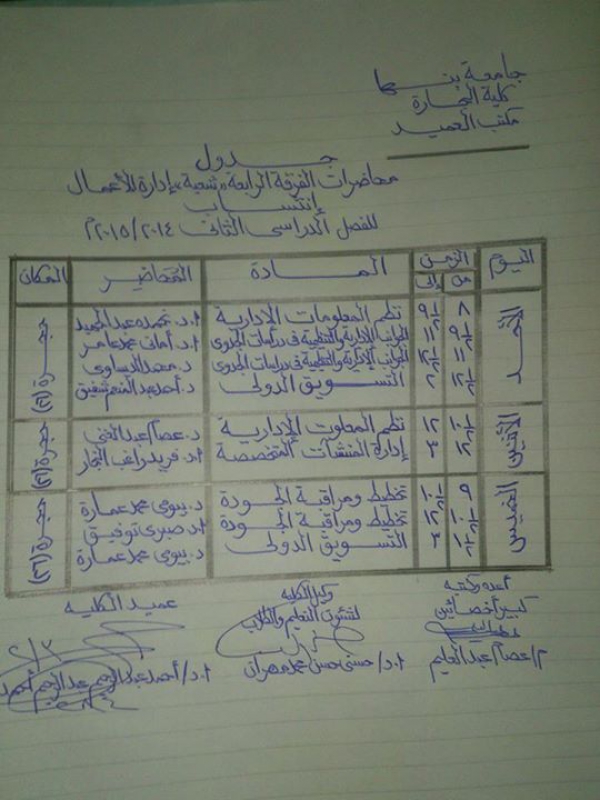 جامعة بنها
كلية التجارة
مكتب العميد
جدول
محاضرات الفرقة الرابعة "شعبة" إدارة الأعمال
إنتساب
للفصل الدراسى الثانى ٢٠١٥/٢٠١٤م
اليوم الزمن المادة المحاضر المكان
من إلى
الأحد ٨ ٩½ نظم المعلومات الإدارية ا.د. نجده عبدالحميد حجرة (٢٦)
٩½ ١١ الجوانب الإدارية والتنظيمية فى دراسات الجدوى ا.د. أمانى محمد عامر
١١ ١٢½ الجوانب الإدارية والتنظيمية فى دراسات الجدوى د. محمد الدساوى
١٢½ ٢ التسويق الدولى د. أحمد عبد المنعم شفيق
الأثنين ١٠½ ١٢ نظم المعلومات الإدارية د. عصام عبد الغنى حجرة (٢٦)
١٢ ٣ إدارة المنشآت المتخصصة ا.د. فريد راغب النجار
الخميس ٩ ١٠½ تخطيط ومراقبة الجودة د. بيومى محمد عمارة حجرة (٢٦)
١٠½ ١٢ تخطيط ومراقبة الجودة ا.د. صبرى توفيق
١½ ٣ التسويق الدولى د. بيومى محمد عمارة
أعده وكتبه
كبير أخصائين
م/عصام عبد العليم
وكيل الكلية
لشئون التعليم والطلاب
ا.د/ حسنى حسن محمد مهران
عميد الكليه
ا.د/ أحمد عبدالرحيم عبدالرحيم أحمد